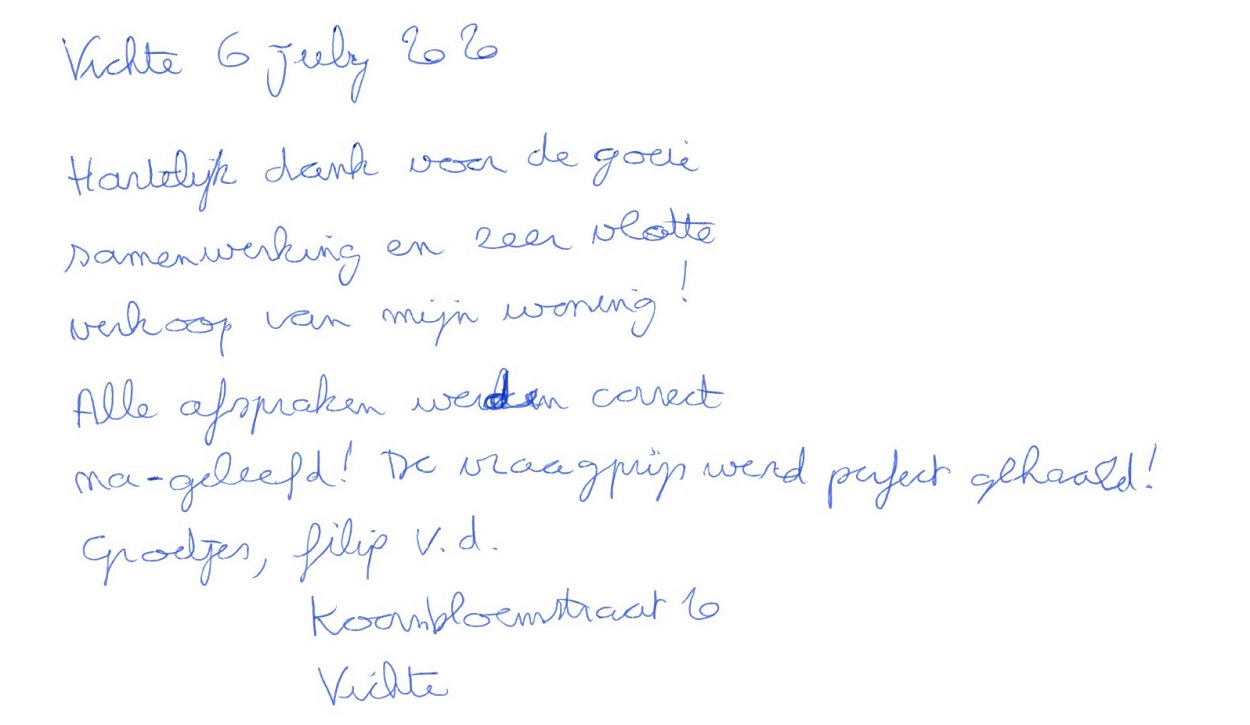 Vichte 6 july 2020
Hartelijk dank voor de goeie
samenwerking en zeer vlotte
verkoop van mijn woning!
Alle afspraken werden correct
na-geleefd! De vraagprijs werd perfect gehaald!
Groetjes, filip v.d.
Koornbloemstraat 10
Vichte